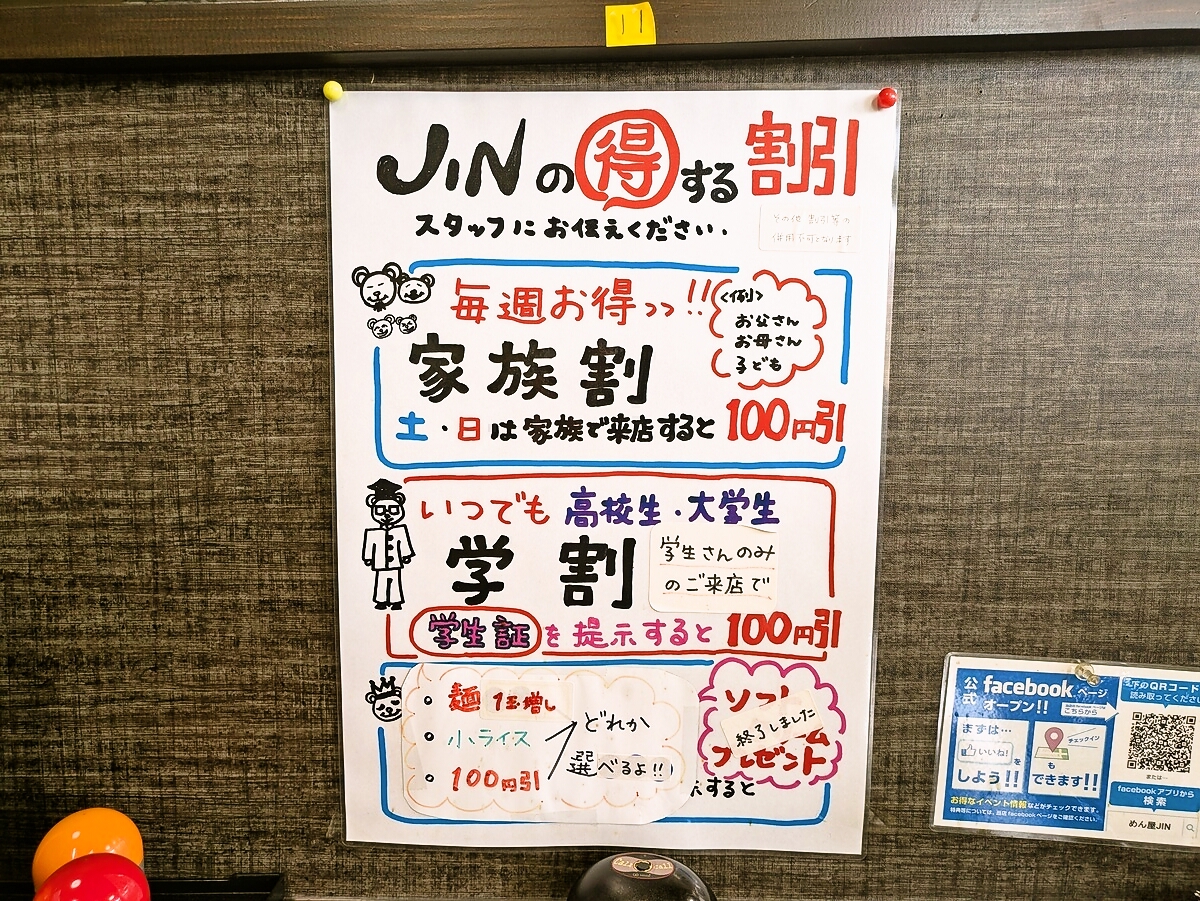 11
JINの得する割引
スタッフにお伝えください.
その他 割引等の
併用不可となります
毎週お得っっ!!
<例>
お父さん
お母さん
子ども
家族割
土・日は家族で来店すると100円引
いつでも 高校生・大学生
学割
学生さんのみ
のご来店で
学生証を提示すると100円引
• 麺 1玉増し
• 小ライス
• 100円引
どれか
選べるよ!!
ソフト
終了しました
プレゼント
示すると
公式 facebookページ
オープン!!
こちらから
まずは…
いいね!
を
しよう!!
チェックイン
も
できます!!
お得なイベント情報などがチェックできます。
特典等については、当店facebookページをご確認ください。
下のQRコード
読み取ってくださ
または…
facebookアプリから
検索
めん屋JIN